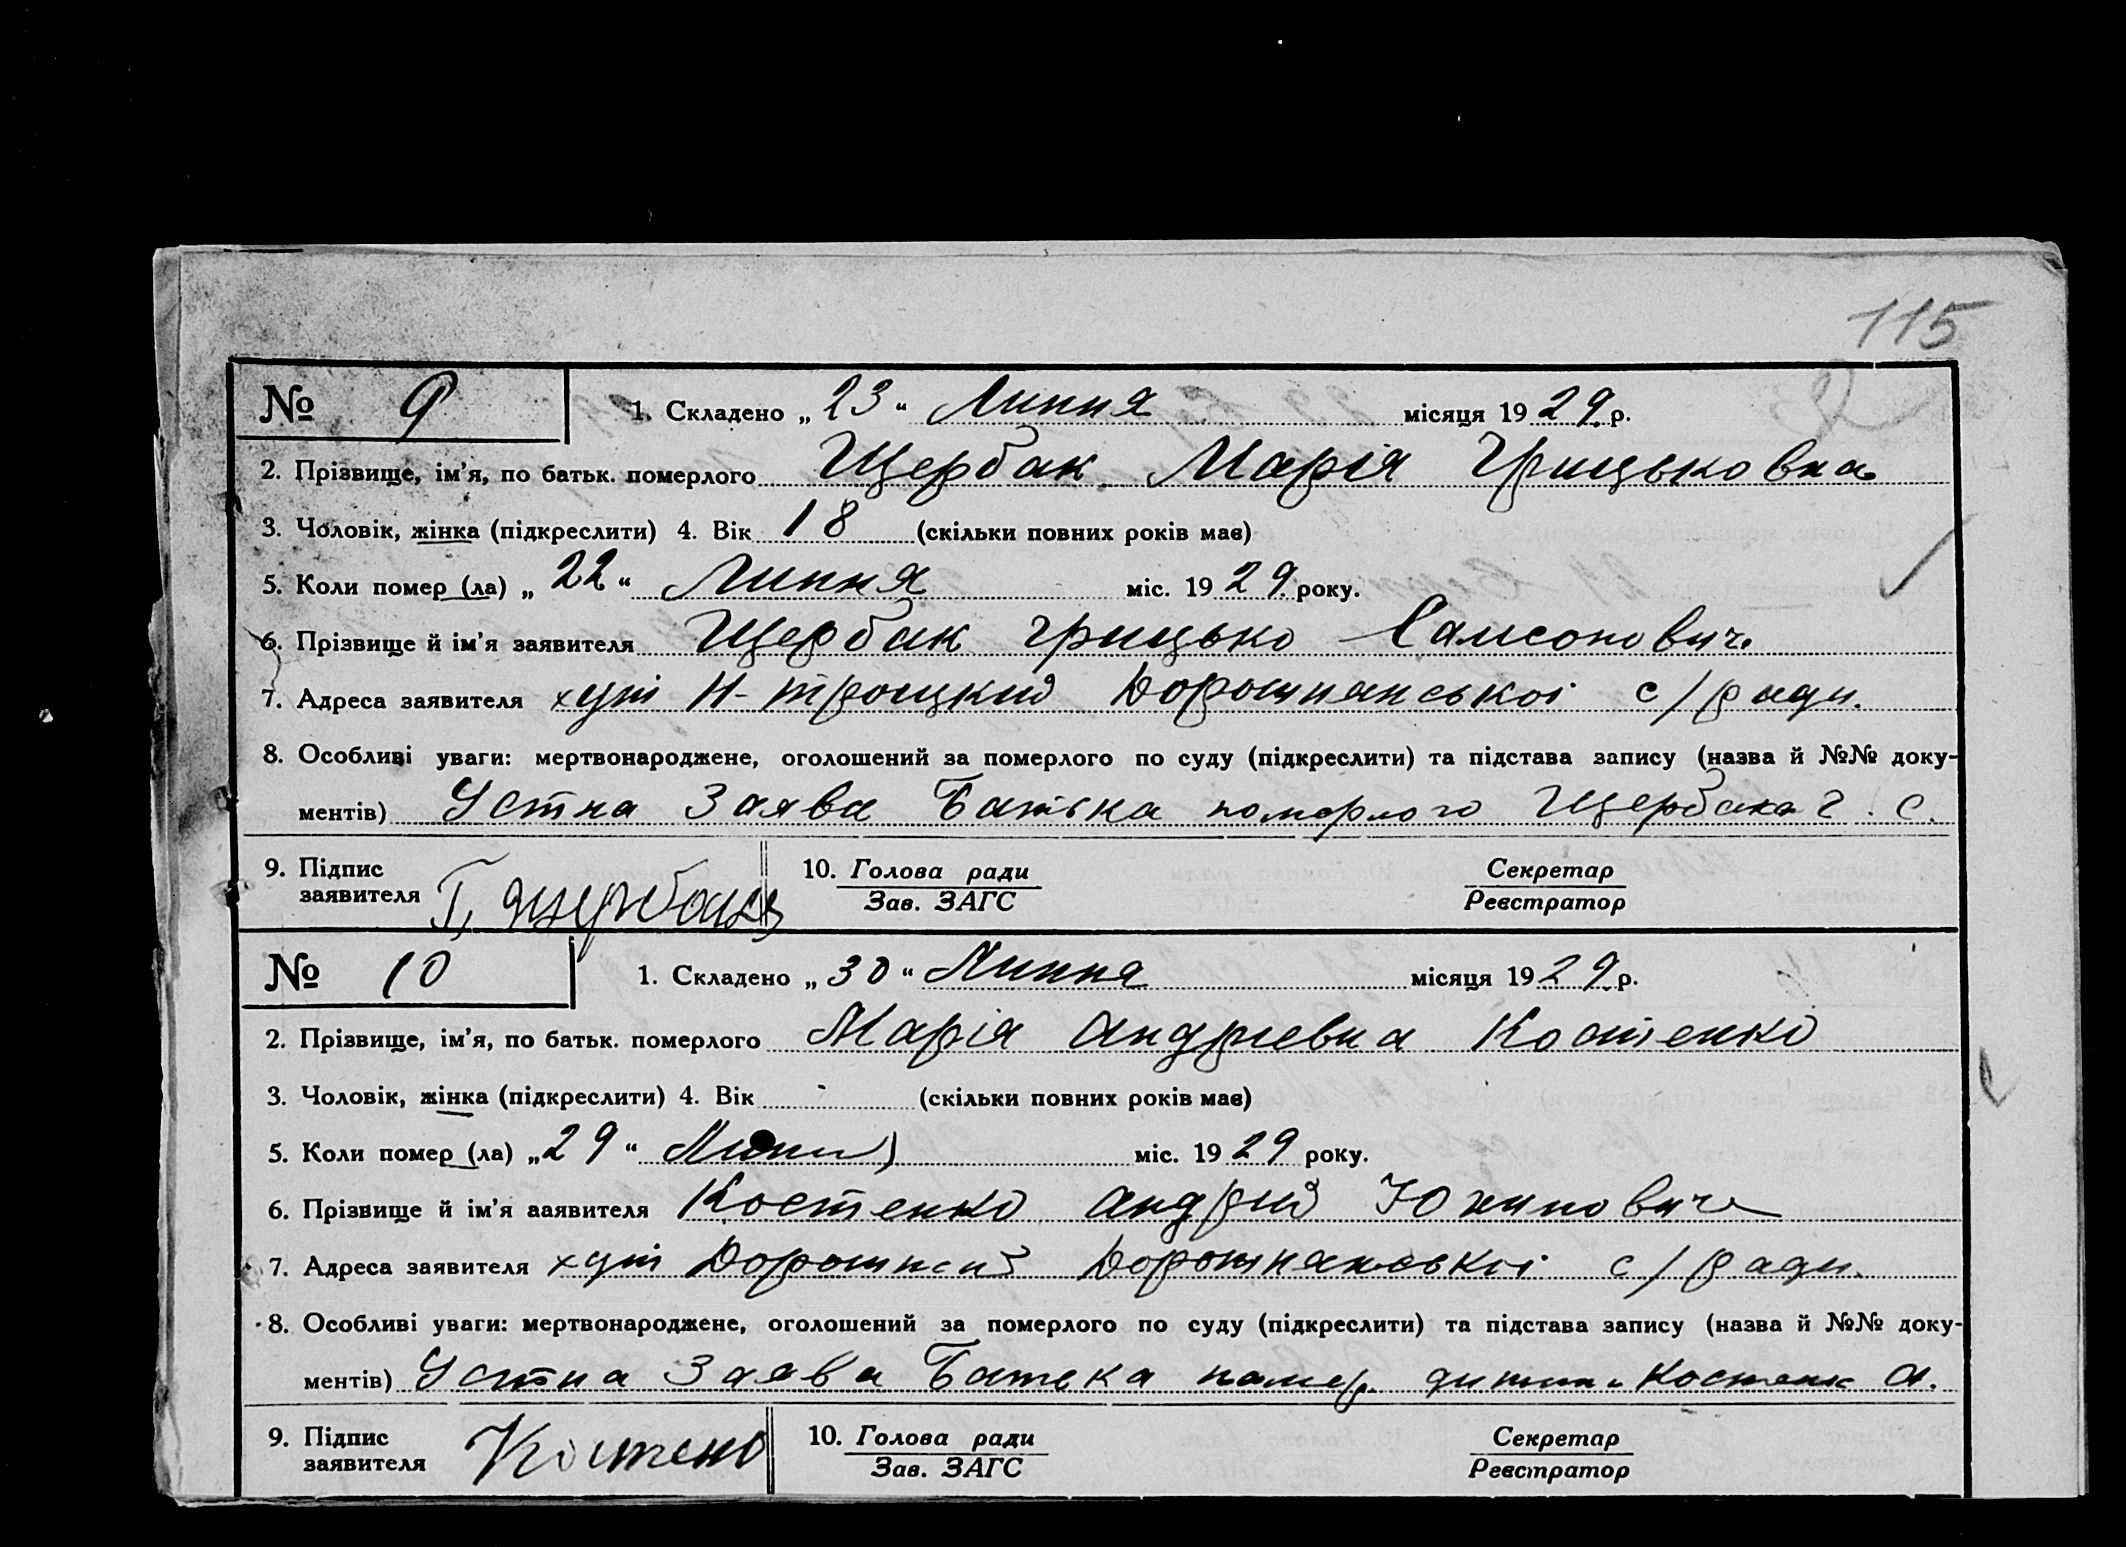 115
№ 9 1. Складено „ 23 “ Липня місяця 19 29 р.
2. Прізвище, ім'я, по батьк. померлого Щербак Марія Грицьковна
3. Чоловік, жінка (підкреслити) 4. Вік 18 (скільки повних років має)
5. Коли помер (ла) „ 22 “ Липня міс. 19 29 року.
6. Прізвище й ім'я заявителя Щербак Грицько Самсонович
7. Адреса заявителя хут Н-Троцкий Дорошнянськоі с/ради.
8. Особливі уваги: мертвонароджене, оголошений за померлого по суду (підкреслити) та підстава запису (назва й №№ доку-
ментів) Устна Заява Батька померлого Щербака Г. С.
9. Підпис 10. Голова ради Секретар
заявителя Г. Щербак Зав. ЗАГС Реєстратор
№ 10 1. Складено „ 30 “ Липня місяця 19 29 р.
2. Прізвище, ім'я, по батьк. померлого Марія Андриевна Костенко
3. Чоловік, жінка (підкреслити) 4. Вік (скільки повних років має)
5. Коли помер (ла) „ 29 “ міс. 19 29 року.
6. Прізвище й ім'я заявителя Костенко Андрий
7. Адреса заявителя хут Дорошнянськоі с/ради.
8. Особливі уваги: мертвонароджене, оголошений за померлого по суду (підкреслити) та підстава запису (назва й №№ доку-
ментів) Устна Заява Батька помер. Костенк А.
9. Підпис 10. Голова ради Секретар
заявителя Костено Зав. ЗАГС Реєстратор